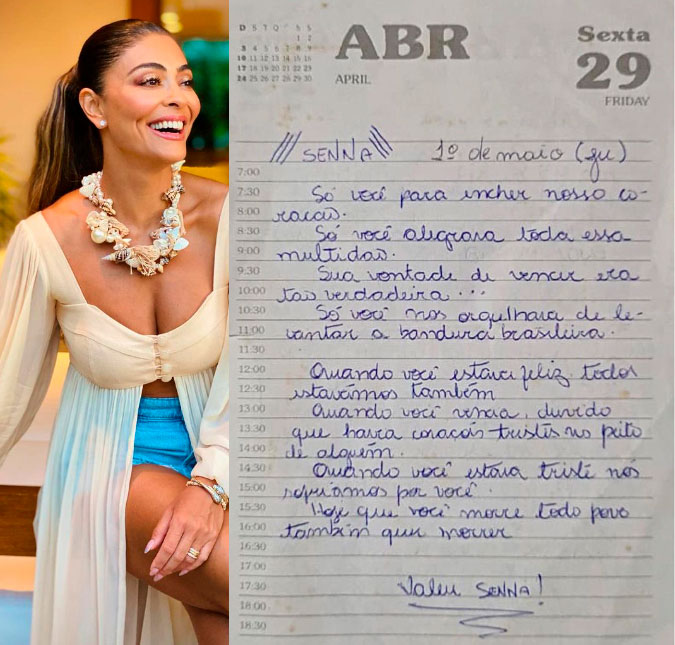 D S T Q S S
1 2
3 4 5 6 7 8 9
10 11 12 13 14 15 16
17 18 19 20 21 22 23
24 25 26 27 28 29 30
ABR
APRIL
Sexta
29
FRIDAY
/// SENNA \\\ 1º de maio (gu)
7:00
7:30 Só você para encher nosso co-
8:00 ração.
8:30 Só você alegrava toda essa
9:00 multidão.
9:30 Sua vontade de vencer era
10:00 tão verdadeira...
10:30 Só você nos orgulhava de le-
11:00 vantar a bandeira brasileira.
11:30
12:00 Quando você estava feliz todos
12:30 estavámos também
13:00 Quando você vencia, duvido
13:30 que havia coração tristes no peito
14:00 de alguém.
14:30 Quando você estava triste nós
15:00 sofriamos por você.
15:30 Hoje que você morre todo povo
16:00 também quer morrer
16:30
17:00
17:30 Valeu SENNA!
18:00
18:30